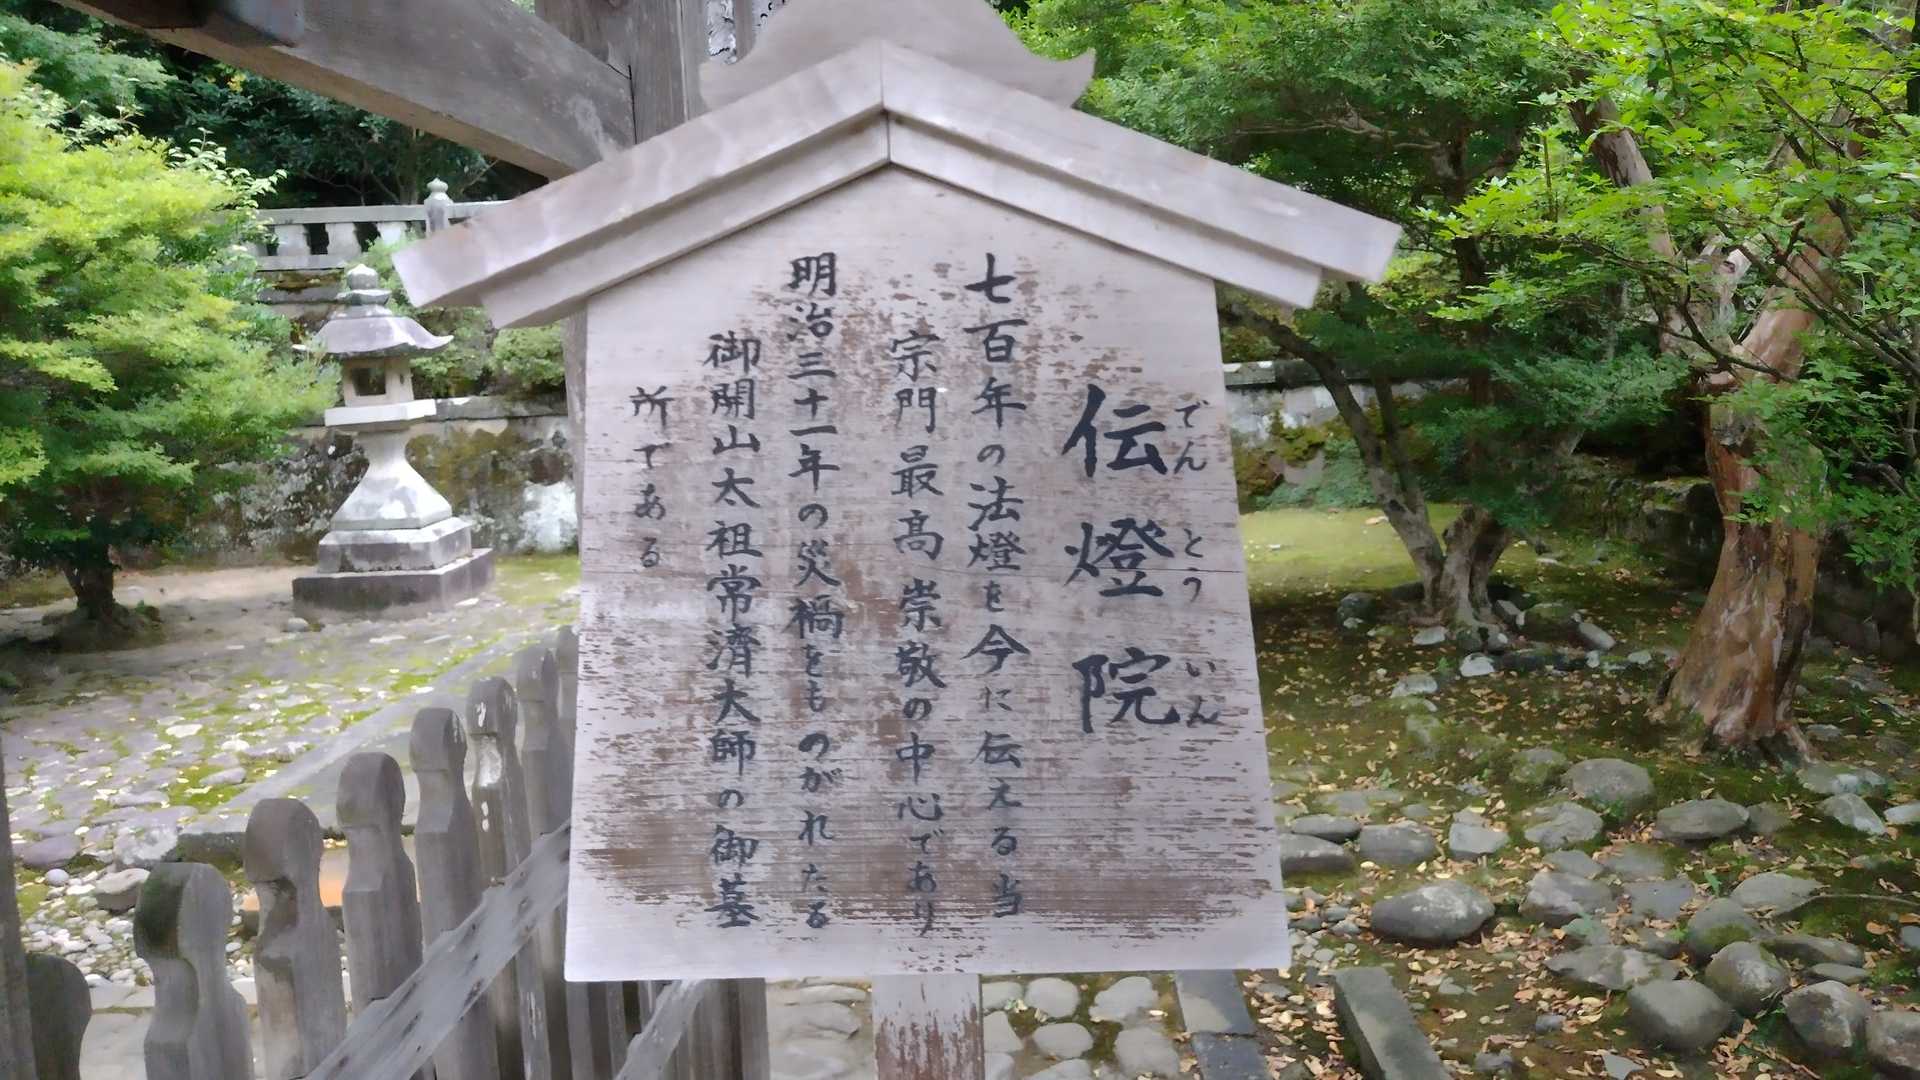 伝燈院
でんとういん
七百年の法燈を今に伝える当
宗門最高崇敬の中心であり
明治三十一年の災禍をものがれたる
御開山太祖常濟大師の御墓
所である